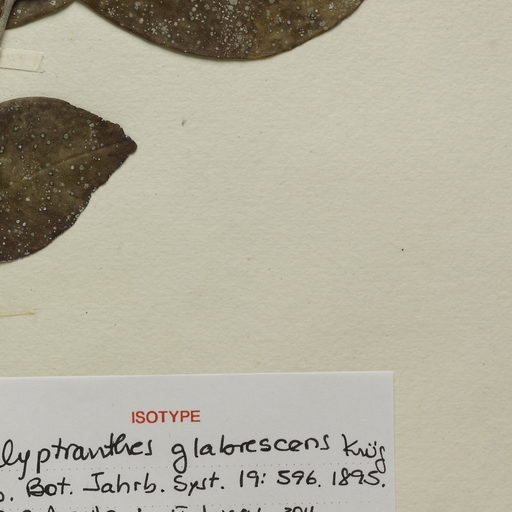 ISOTYPE
lyptranthes glabrescens Krüg
. Bot. Jahrb. Syst. 19: 596. 1895.